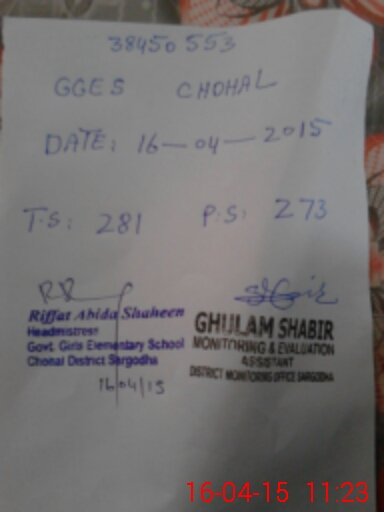 38450553
GGES CHOHAL
DATE: 16-04-2015
T.S: 281 P.S: 273
Riffat Abida Shaheen
Headmistress
Govt. Girls Elementary School
Chohal District Sargodha
16/04/15
GHULAM SHABIR
MONITORING & EVALUATION
ASSISTANT
DISTRICT MONITORING OFFICE SARGODHA
16-04-15 11:23